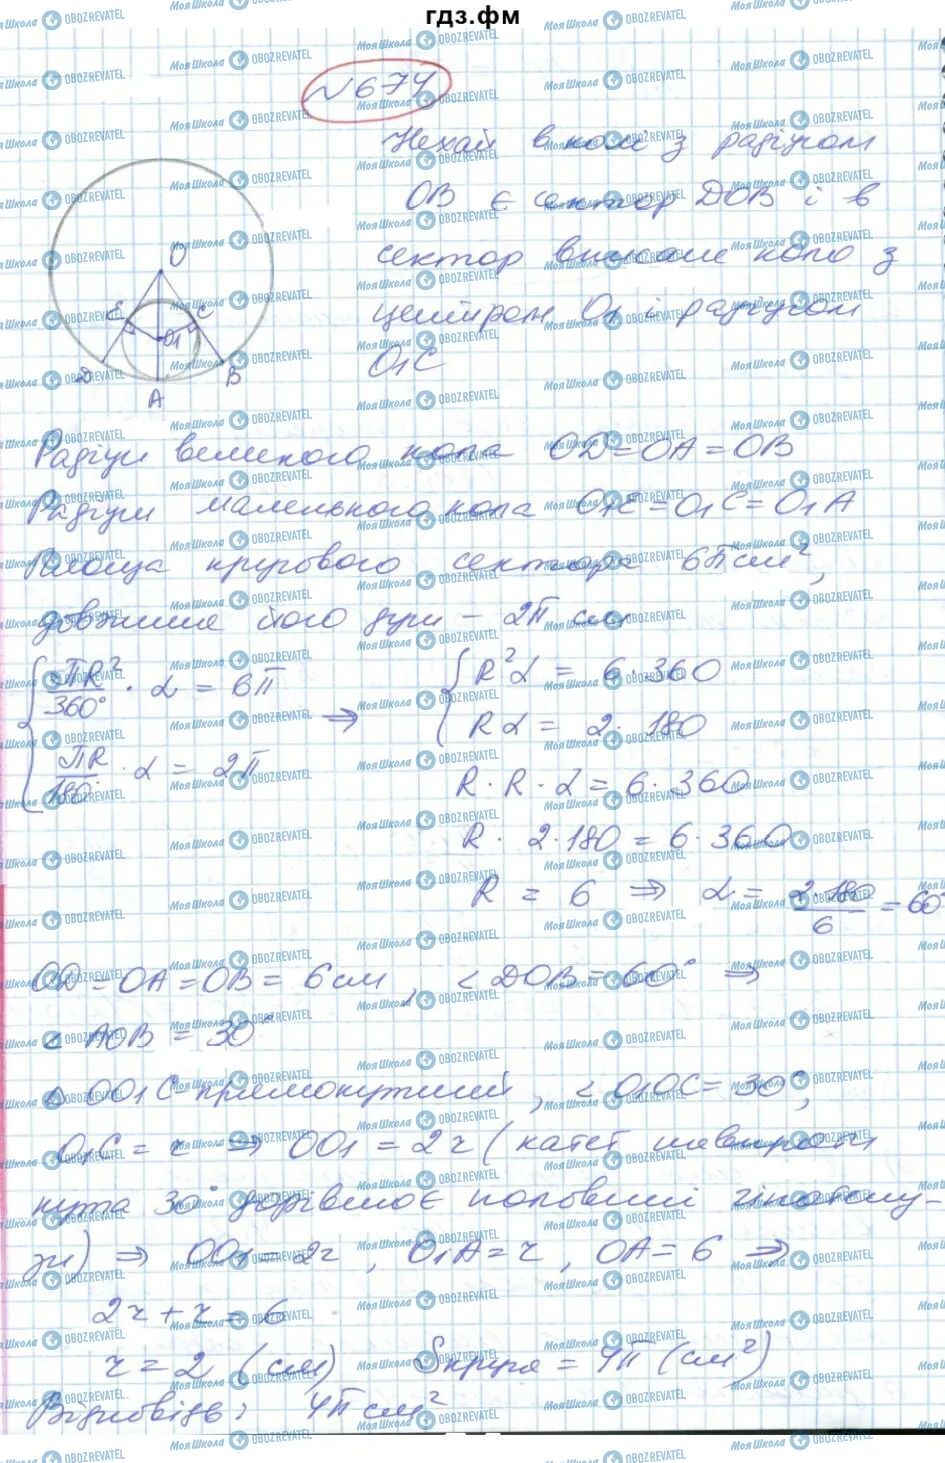 гдз.фм
№ 674
Нехай в колі з радіусом
OB є сектор DOB і в
сектор вписане коло з
центром O₁ і радіусом
O₁C
O
E
C
O₁
D
B
A
Радіуси великого кола OD = OA = OB
Радіуси маленького кола O₁E = O₁C = O₁A
Площа кругового сектора 6π см²,
довжина його дуги – 2π см
{ πR²/360° · α = 6π ⇒ { R²α = 6·360
πR/180 · α = 2π Rα = 2·180
R · R · α = 6·360
R · 2·180 = 6·360
R = 6 ⇒ α = 2·180/6 = 60°
OD = OA = OB = 6 см, < DOB = 60° ⇒
< AOB = 30°
△ OO₁C – прямокутний, < O₁OC = 30°,
O₁C = r ⇒ OO₁ = 2r (катет навпроти
кута 30° дорівнює половині гіпотену-
зи) ⇒ OO₁ = 2r, O₁A = r, OA = 6 ⇒
2r + r = 6
r = 2 (см) Sкруга = 4π (см²)
Відповідь: 4π см²
МояШкола OBOZREVATEL